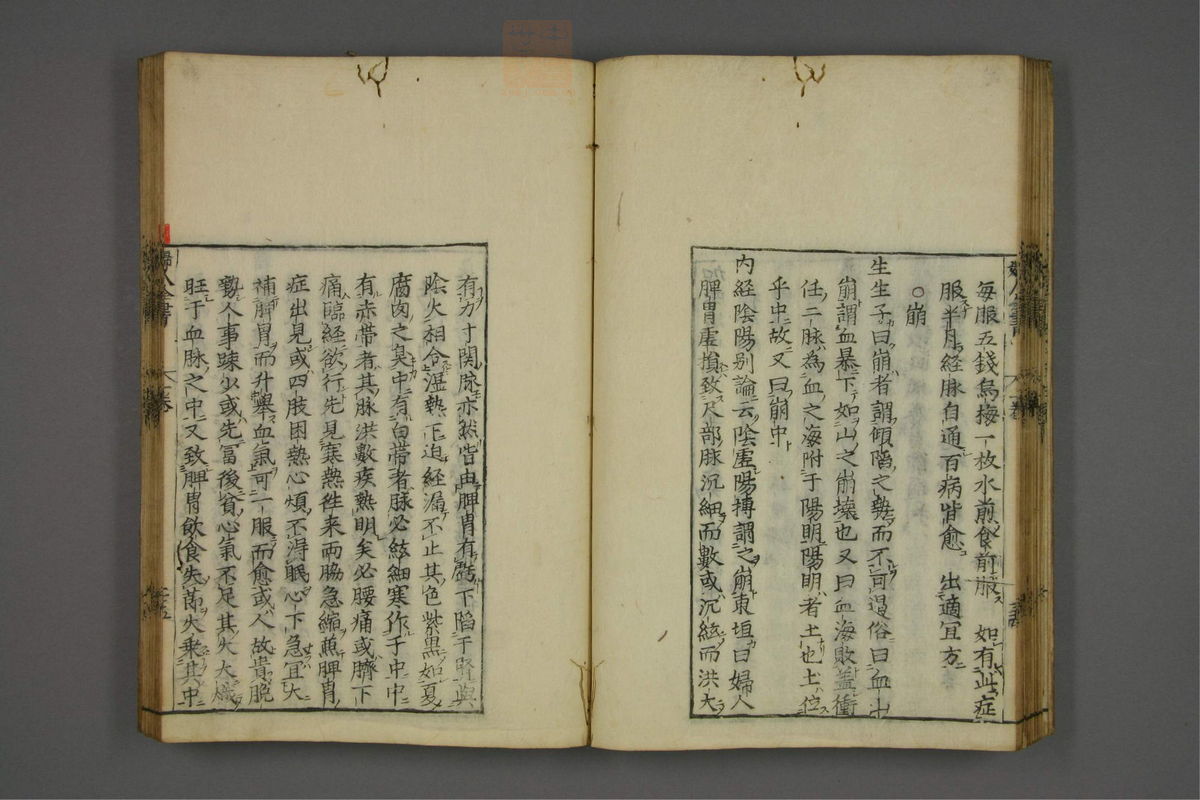 毎服五錢烏梅一枚水煎食前服　如有此症
服半月経脉自通百病皆愈　出適宜方
○崩
生生子曰崩者謂傾陷之勢而不可遏俗曰血山
崩謂血暴下如山之崩壊也又曰血海敗蓋衝
任二脉為血之海附于陽明陽明者土也土位
乎中故又曰崩中
内経陰陽别論云陰虚陽搏謂之崩東垣曰婦人
脾胃虚損致尺部脉沉細而數或沉絃而洪大
有力寸関脉亦然皆由脾胃有虧下陷于腎與
陰火相合湿熱下迫経漏不止其色紫黒如夏
腐肉之臭中有白帯者脉必絃細寒作于中中
有赤帯者其脉洪數疾熱明矣必腰痛或臍下
痛臨経欲行先見寒熱徃来両脇急縮兼脾胃
症出見或四肢困熱心煩不得眠心下急宜大
補脾胃而升舉血氣可一服而愈或人故貴脱
勢人事疎少或先冨後貧心氣不足其火大熾
旺于血脉之中又致脾胃飲食失節火乗其中
婦人全書